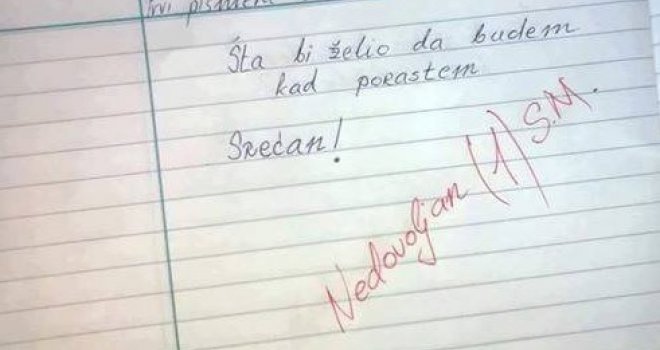 Prvi pismeni
Šta bi želio da budem
kad porastem
Srećan!
Nedovoljan (1) S.M.